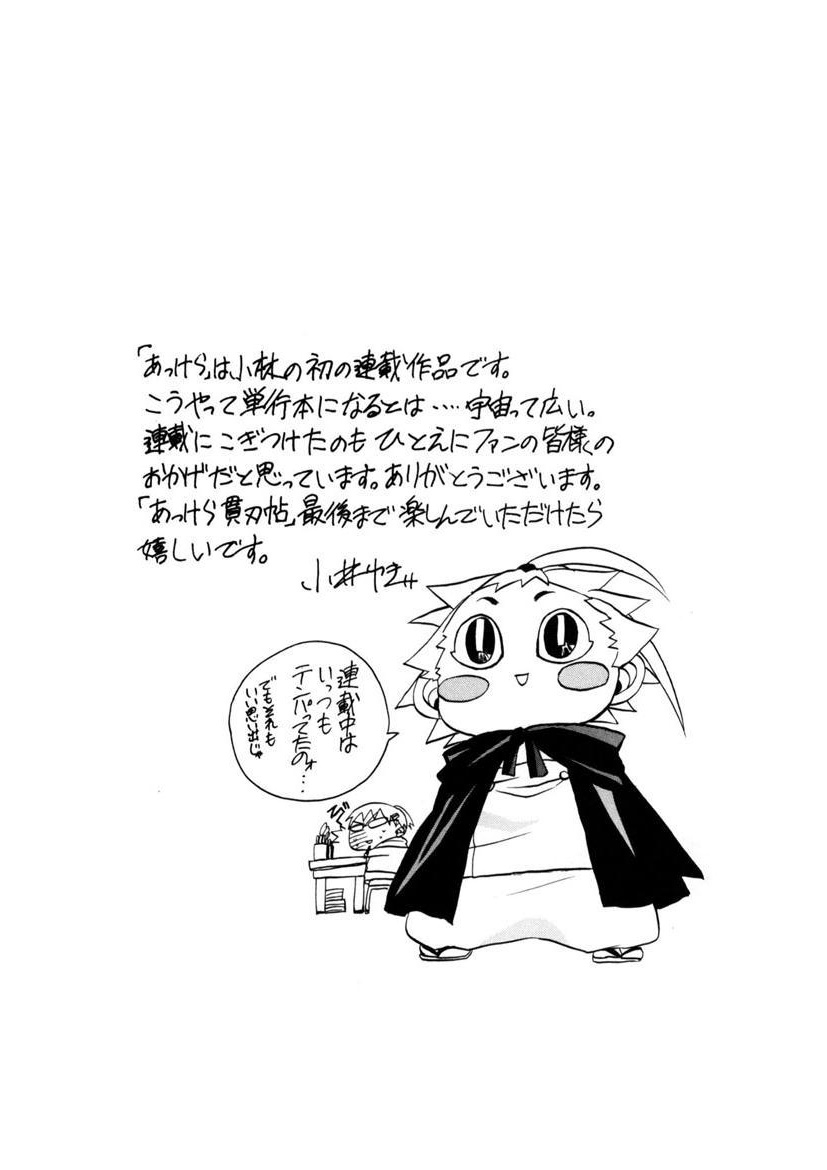 「あっけら」は小林の初の連載作品です。
こうやって単行本になるとは‥‥宇宙って広い。
連載にこぎつけたのもひとえにファンの皆様の
おかげだと思っています。ありがとうございます。
「あっけら貫刃帖」最後まで楽しんでいただけたら
嬉しいです。
連載中は
いっつも
テンパってたのォ…
でもそれも
いい思い出じゃ